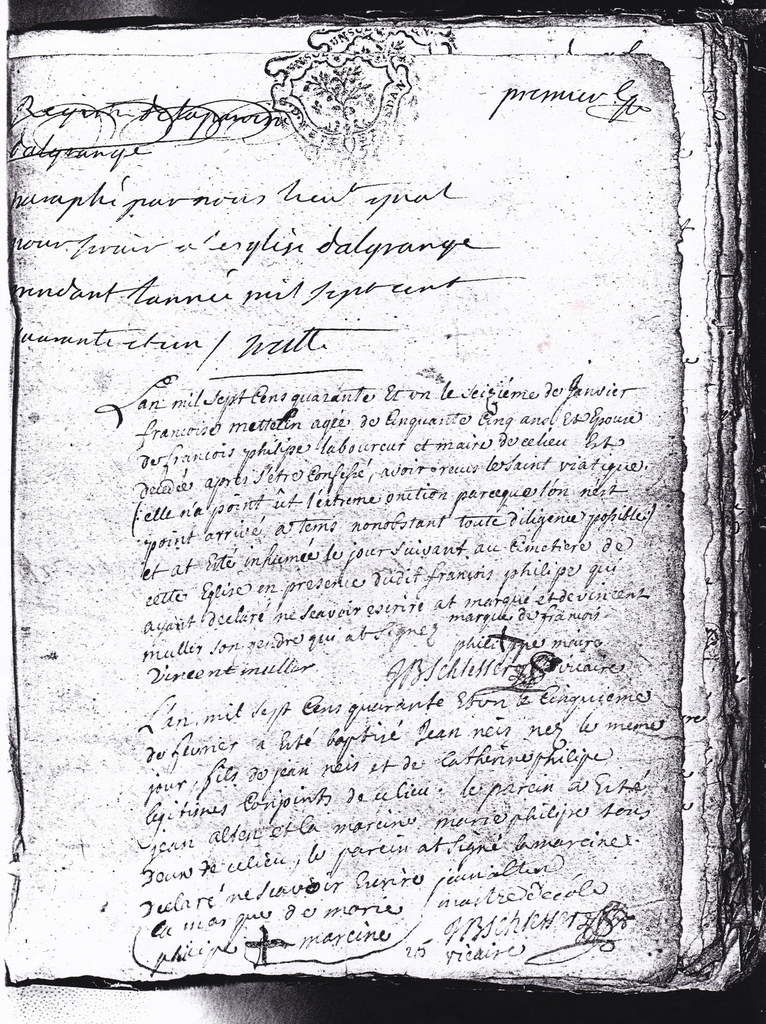 premier
Registre de la paroisse
dalgrange
paraphé par nous Lieut gnal
pour servir a l'esglise dalgrange
pendant Lannée mil sept cent
quarante et un /
Lan mil sept Cens quarante Et vn le seizième de Janvier
francoise mettelin agée de Cinquante Cinq ans Et Epouse
de francois philipe laboureur et maire de ce lieu Est
decedée apres s'être Confessé, avoir recus le saint viatique.
(: elle n'a point ût l'extreme onction parceque l'on n'est
point arrivé a tems nonobstant toute diligence possible:)
et at Esté inhumée le jour suivant au Cimetiere de
cette Eglise en presence dudit francois philipe qui
ayant declaré ne scavoir escrire at marqué et de vincent
muller son gendre qui at signez marque de francois
philippe maire
Vincent muller JB Schlesser vicaire
L'an mil sept Cens quarante Et vn le Cinquieme
de fevrier a Esté baptizé Jean neis nez le meme
jour, fils de jean neis et de Catherine philipe
legitimes Conjoints de ce lieu. le parein a Esté
jean alten et la mareine marie philipe tous
deux de ce lieu, le parein at signé la mareine
declaré ne scavoir Escrire jean alten
la marque de marie maitre d'ecole
philipe mareine JB Schlesser
vicaire